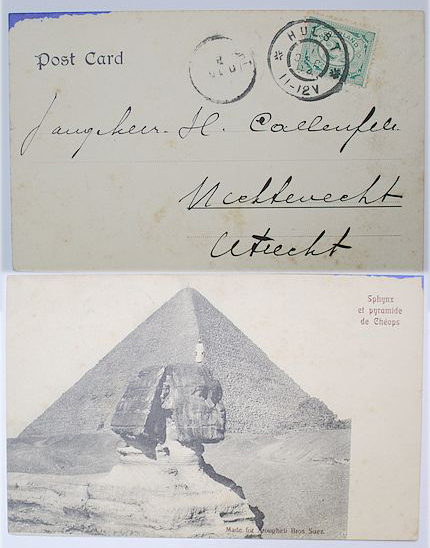 Post Card
HULST
11-12V
LAND
H. Callenfels
Utrecht
Sphynx
et pyramide
de Chéops
Made for Broughen Bros Suez.